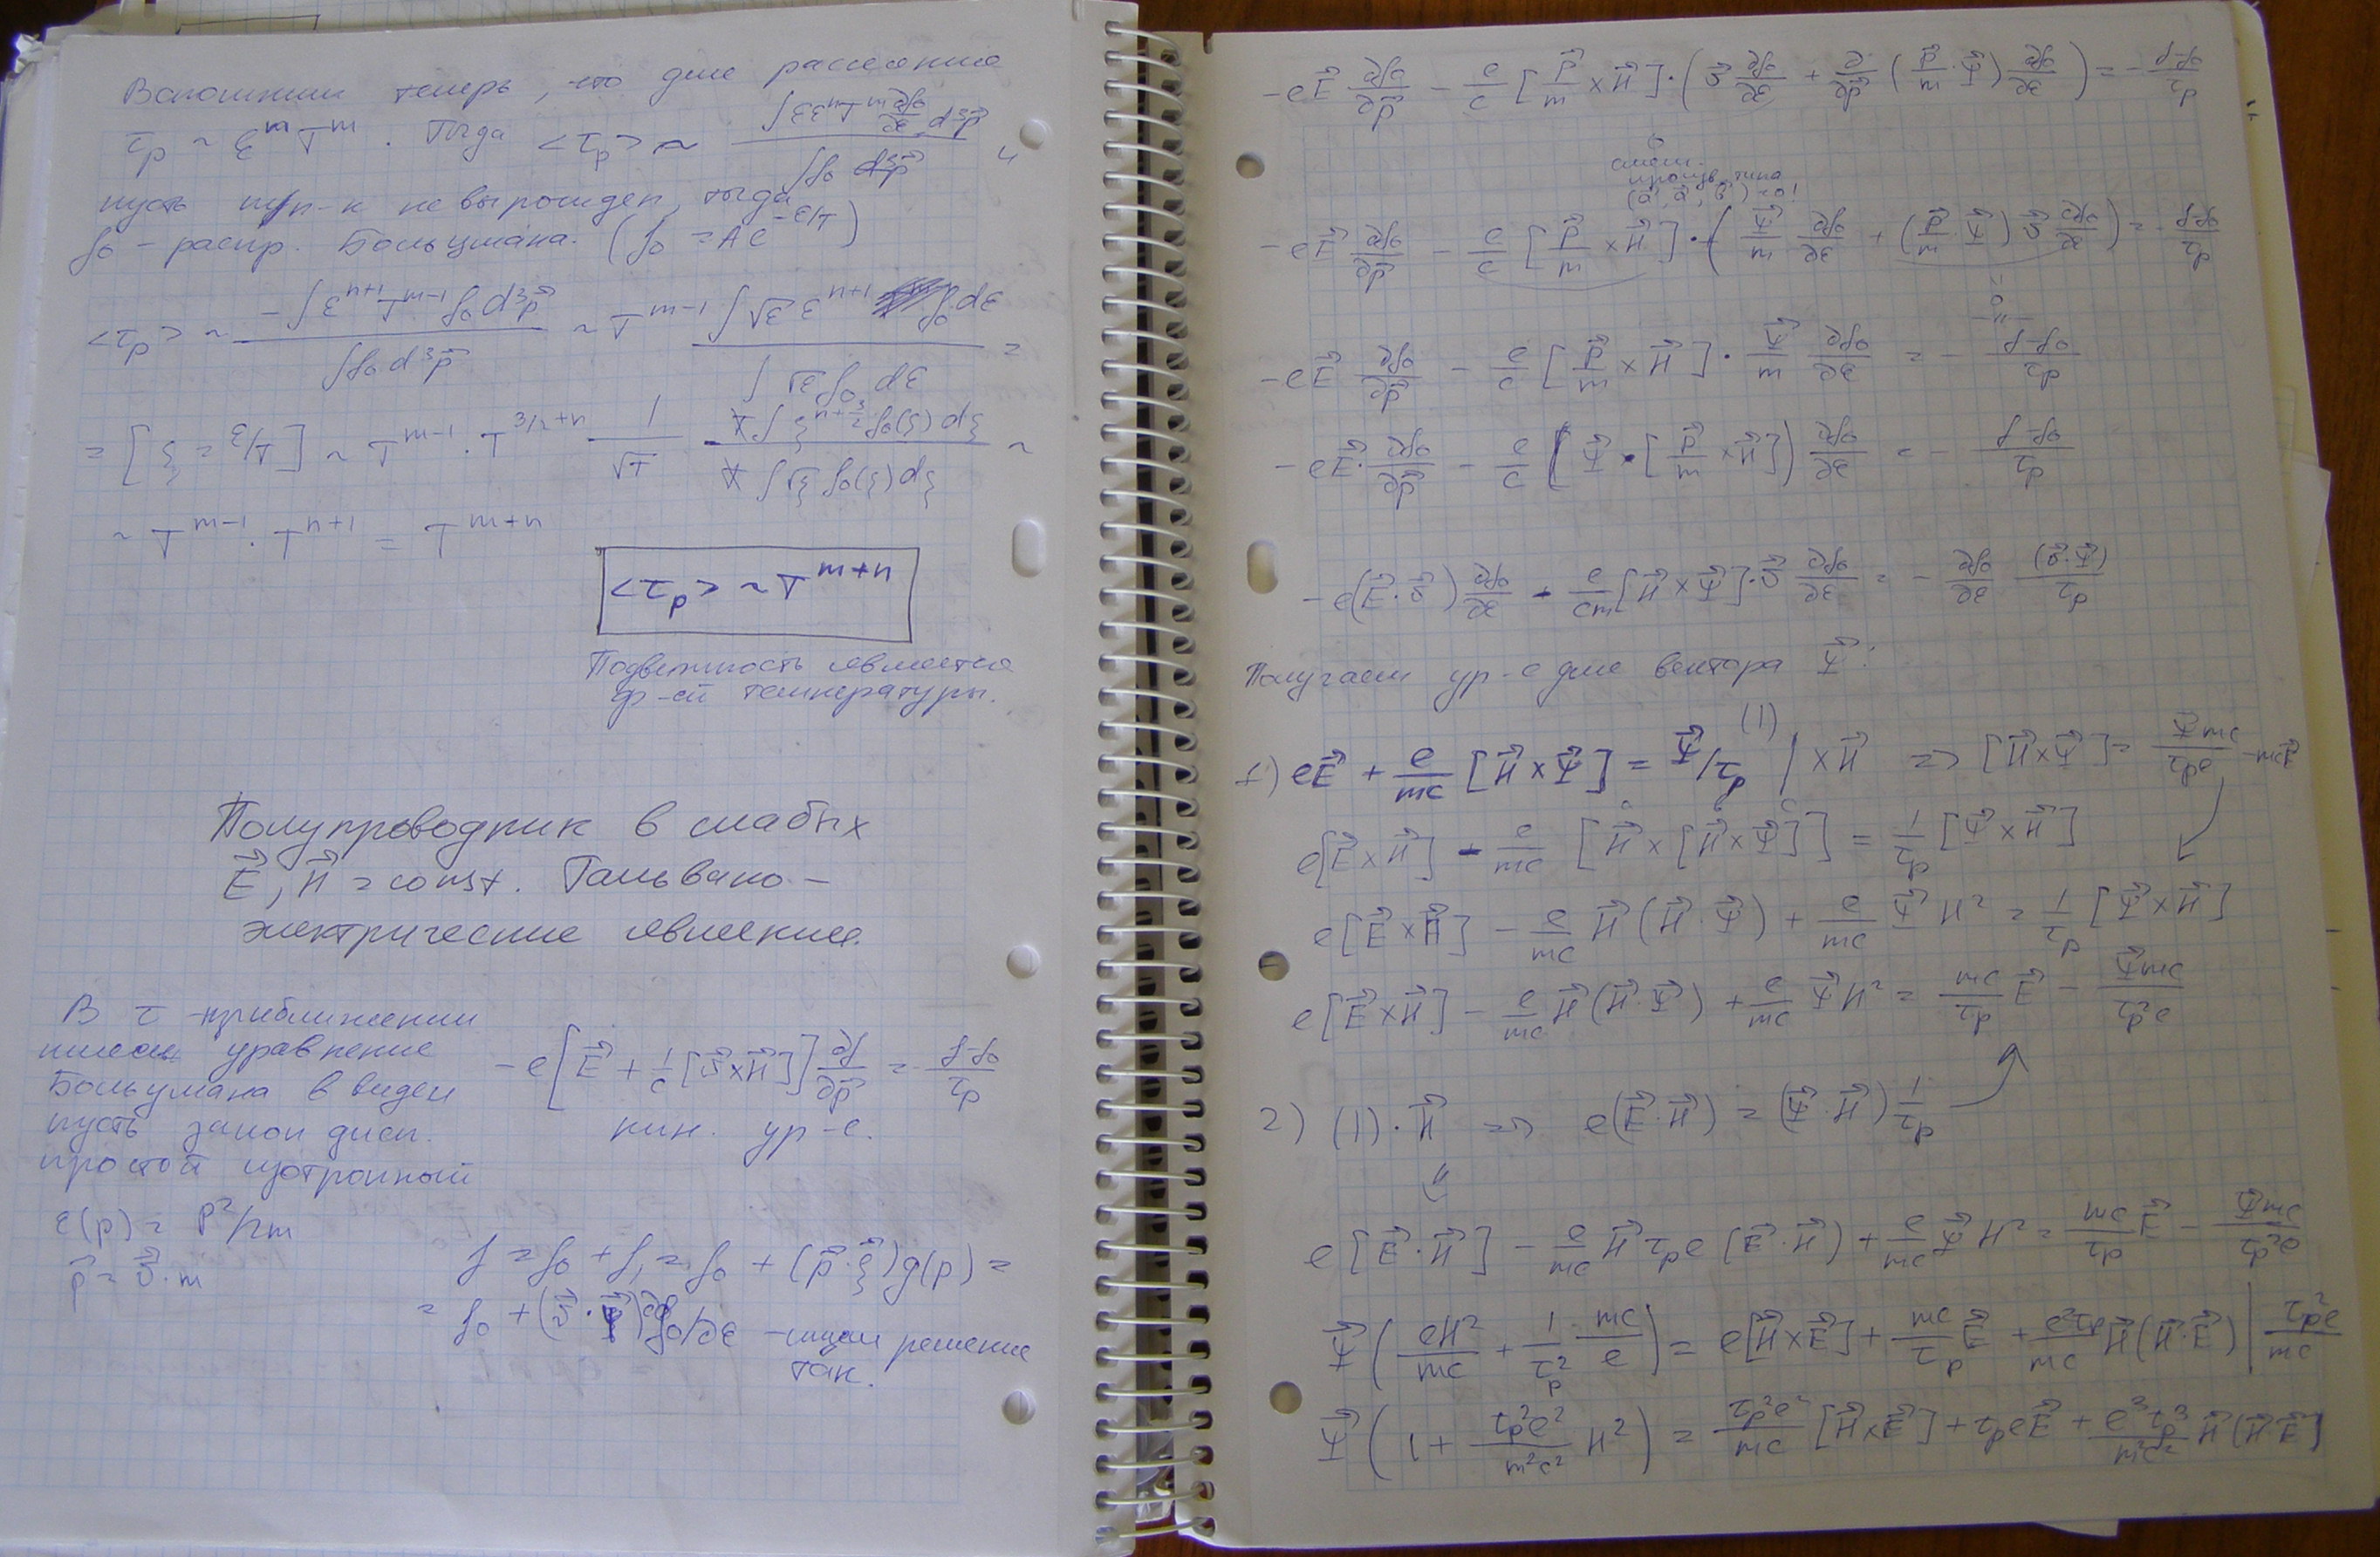 Вспомним теперь, что для рассеяния
τ_p ~ ε^m T^m . Тогда <τ_p> ~ ∫εε^n T^m ∂f₀/∂ε d³p⃗ / ∫f₀ d³p⃗ и
пусть п/п-к не вырожден, тогда
f₀ - распр. Больцмана. (f₀ = Ae^{-ε/T})
<τ_p> ~ -∫ε^{n+1} T^{m-1} f₀ d³p⃗ / ∫f₀ d³p⃗ ~ T^{m-1} ∫√ε ε^{n+1} f₀ dε / ∫√ε f₀ dε =
= [ξ = ε/T] ~ T^{m-1} · T^{3/2+n} 1/√T · T∫ξ^{n+3/2} f₀(ξ) dξ / T∫√ξ f₀(ξ) dξ ~
~ T^{m-1} · T^{n+1} = T^{m+n}
<τ_p> ~ T^{m+n}
Подвижность является
ф-ей температуры.
Полупроводник в слабых
E⃗, H⃗ = const. Гальвано-
электрические явления.
В τ-приближении
пишем уравнение
Больцмана в виде
пусть закон дисп.
простой изотропный
ε(p) = p²/2m
p⃗ = v⃗·m
-e[E⃗ + 1/c [v⃗×H⃗]] ∂f/∂p⃗ = - (f-f₀)/τ_p
кин. ур-е.
f = f₀ + f₁ = f₀ + (p⃗·ξ⃗)g(p) =
= f₀ + (v⃗·Ψ⃗)∂f₀/∂ε - ищем решение
так.
-eE⃗ ∂f₀/∂p⃗ - e/c [p⃗/m × H⃗]·(v⃗ ∂f₀/∂ε + ∂/∂p⃗ (p⃗/m · Ψ⃗) ∂f₀/∂ε) = - (f-f₀)/τ_p
0
смеш.
произв. типа
(a⃗, a⃗, b⃗) = 0!
-eE⃗ ∂f₀/∂p⃗ - e/c [p⃗/m × H⃗]·(Ψ⃗/m ∂f₀/∂ε + (p⃗/m · Ψ⃗) v⃗ ∂f₀/∂ε) = - (f-f₀)/τ_p
0
-eE⃗ ∂f₀/∂p⃗ - e/c [p⃗/m × H⃗] · Ψ⃗/m ∂f₀/∂ε = - (f-f₀)/τ_p
-eE⃗· ∂f₀/∂p⃗ - e/c (Ψ⃗·[p⃗/m × H⃗]) ∂f₀/∂ε = - (f-f₀)/τ_p
-e(E⃗·v⃗) ∂f₀/∂ε - e/cm [H⃗×Ψ⃗]·v⃗ ∂f₀/∂ε = - ∂f₀/∂ε (v⃗·Ψ⃗)/τ_p
Получаем ур-е для вектора Ψ⃗:
1) eE⃗ + e/mc [H⃗×Ψ⃗] = Ψ⃗/τ_p (1) | ×H⃗ => [H⃗×Ψ⃗] = Ψ⃗mc/τ_p e - mcE⃗
e[E⃗×H⃗] - e/mc [H⃗×[H⃗×Ψ⃗]] = 1/τ_p [Ψ⃗×H⃗]
e[E⃗×H⃗] - e/mc H⃗(H⃗·Ψ⃗) + e/mc Ψ⃗H² = 1/τ_p [Ψ⃗×H⃗]
e[E⃗×H⃗] - e/mc H⃗(H⃗·Ψ⃗) + e/mc Ψ⃗H² = mc/τ_p E⃗ - Ψ⃗mc/τ_p²e
2) (1)·H⃗ => e(E⃗·H⃗) = (Ψ⃗·H⃗) 1/τ_p
e[E⃗·H⃗] - e/mc H⃗ τ_p e (E⃗·H⃗) + e/mc Ψ⃗H² = mc/τ_p E⃗ - Ψ⃗mc/τ_p²e
Ψ⃗(eH²/mc + 1/τ_p² mc/e) = e[H⃗×E⃗] + mc/τ_p E⃗ + e²τ_p/mc H⃗(H⃗·E⃗) | τ_p²e/mc
Ψ⃗(1 + τ_p²e²/m²c² H²) = τ_p²e²/mc [H⃗×E⃗] + τ_p eE⃗ + e³τ_p³/m²c² H⃗(H⃗·E⃗)